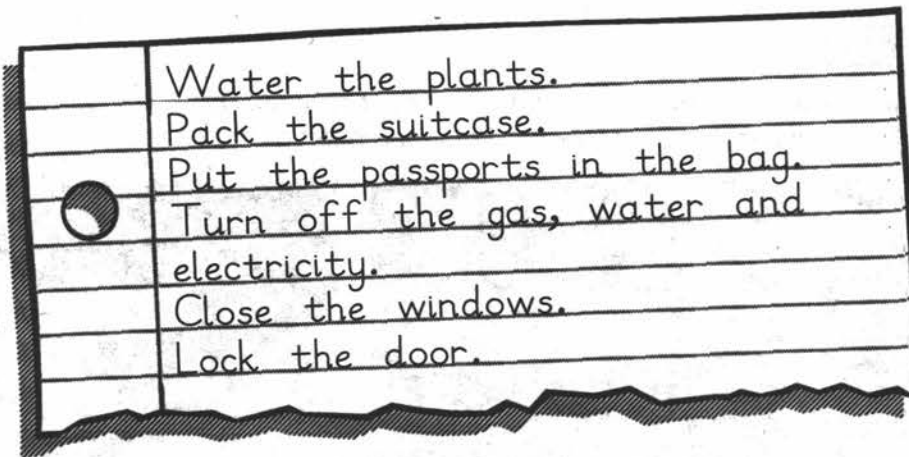 Water the plants.
Pack the suitcase.
Put the passports in the bag.
Turn off the gas, water and
electricity.
Close the windows.
Lock the door.